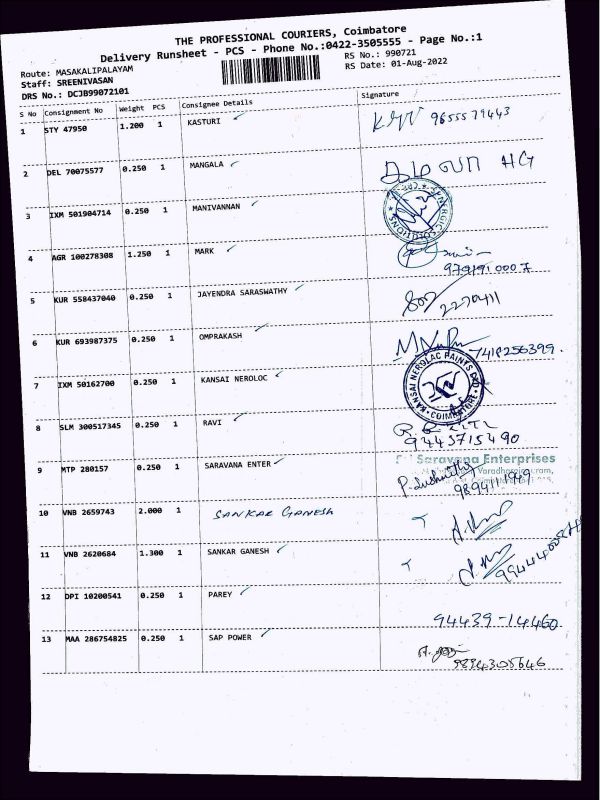 THE PROFESSIONAL COURIERS, Coimbatore
Delivery Runsheet - PCS - Phone No.:0422-3505555 - Page No.:1
Route: MASAKALIPALAYAM RS No.: 990721
Staff: SREENIVASAN RS Date: 01-Aug-2022
DRS No.: DCJB99072101
S No Consignment No Weight PCS Consignee Details Signature
1 STY 47950 1.200 1 KASTURI 9655579443
2 DEL 70075577 0.250 1 MANGALA
3 IXM 501904714 0.250 1 MANIVANNAN
4 AGR 100278308 1.250 1 MARK
5 KUR 558437040 0.250 1 JAYENDRA SARASWATHY 2270411
6 KUR 693987375 0.250 1 OMPRAKASH 7418256399.
7 IXM 50162700 0.250 1 KANSAI NEROLOC KANSAI NEROLAC PAINTS COIMBATORE
8 SLM 300517345 0.250 1 RAVI 9443715490
9 MTP 280157 0.250 1 SARAVANA ENTER Saravana Enterprises
10 VNB 2659743 2.000 1 SANKAR GANESH
11 VNB 2620684 1.300 1 SANKAR GANESH
12 DPI 10200541 0.250 1 PAREY 94439-14460
13 MAA 286754825 0.250 1 SAP POWER 9894305646